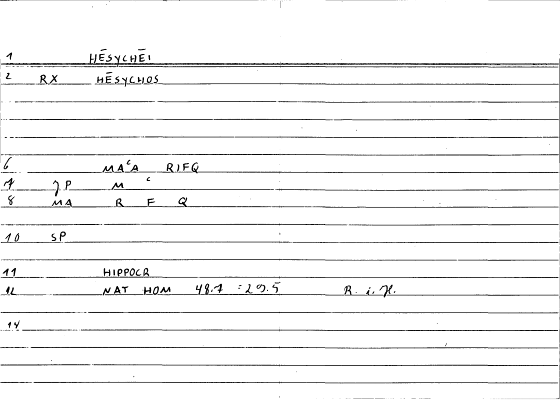 1 HĒSYCHĒI
2 RX HĒSYCHOS
6 MAʿA RIFQ
7 JP M ʿ
8 MA R F Q
10 SP
11 HIPPOCR
12 NAT HOM 48.7 = 29.5 R. i. H.
14